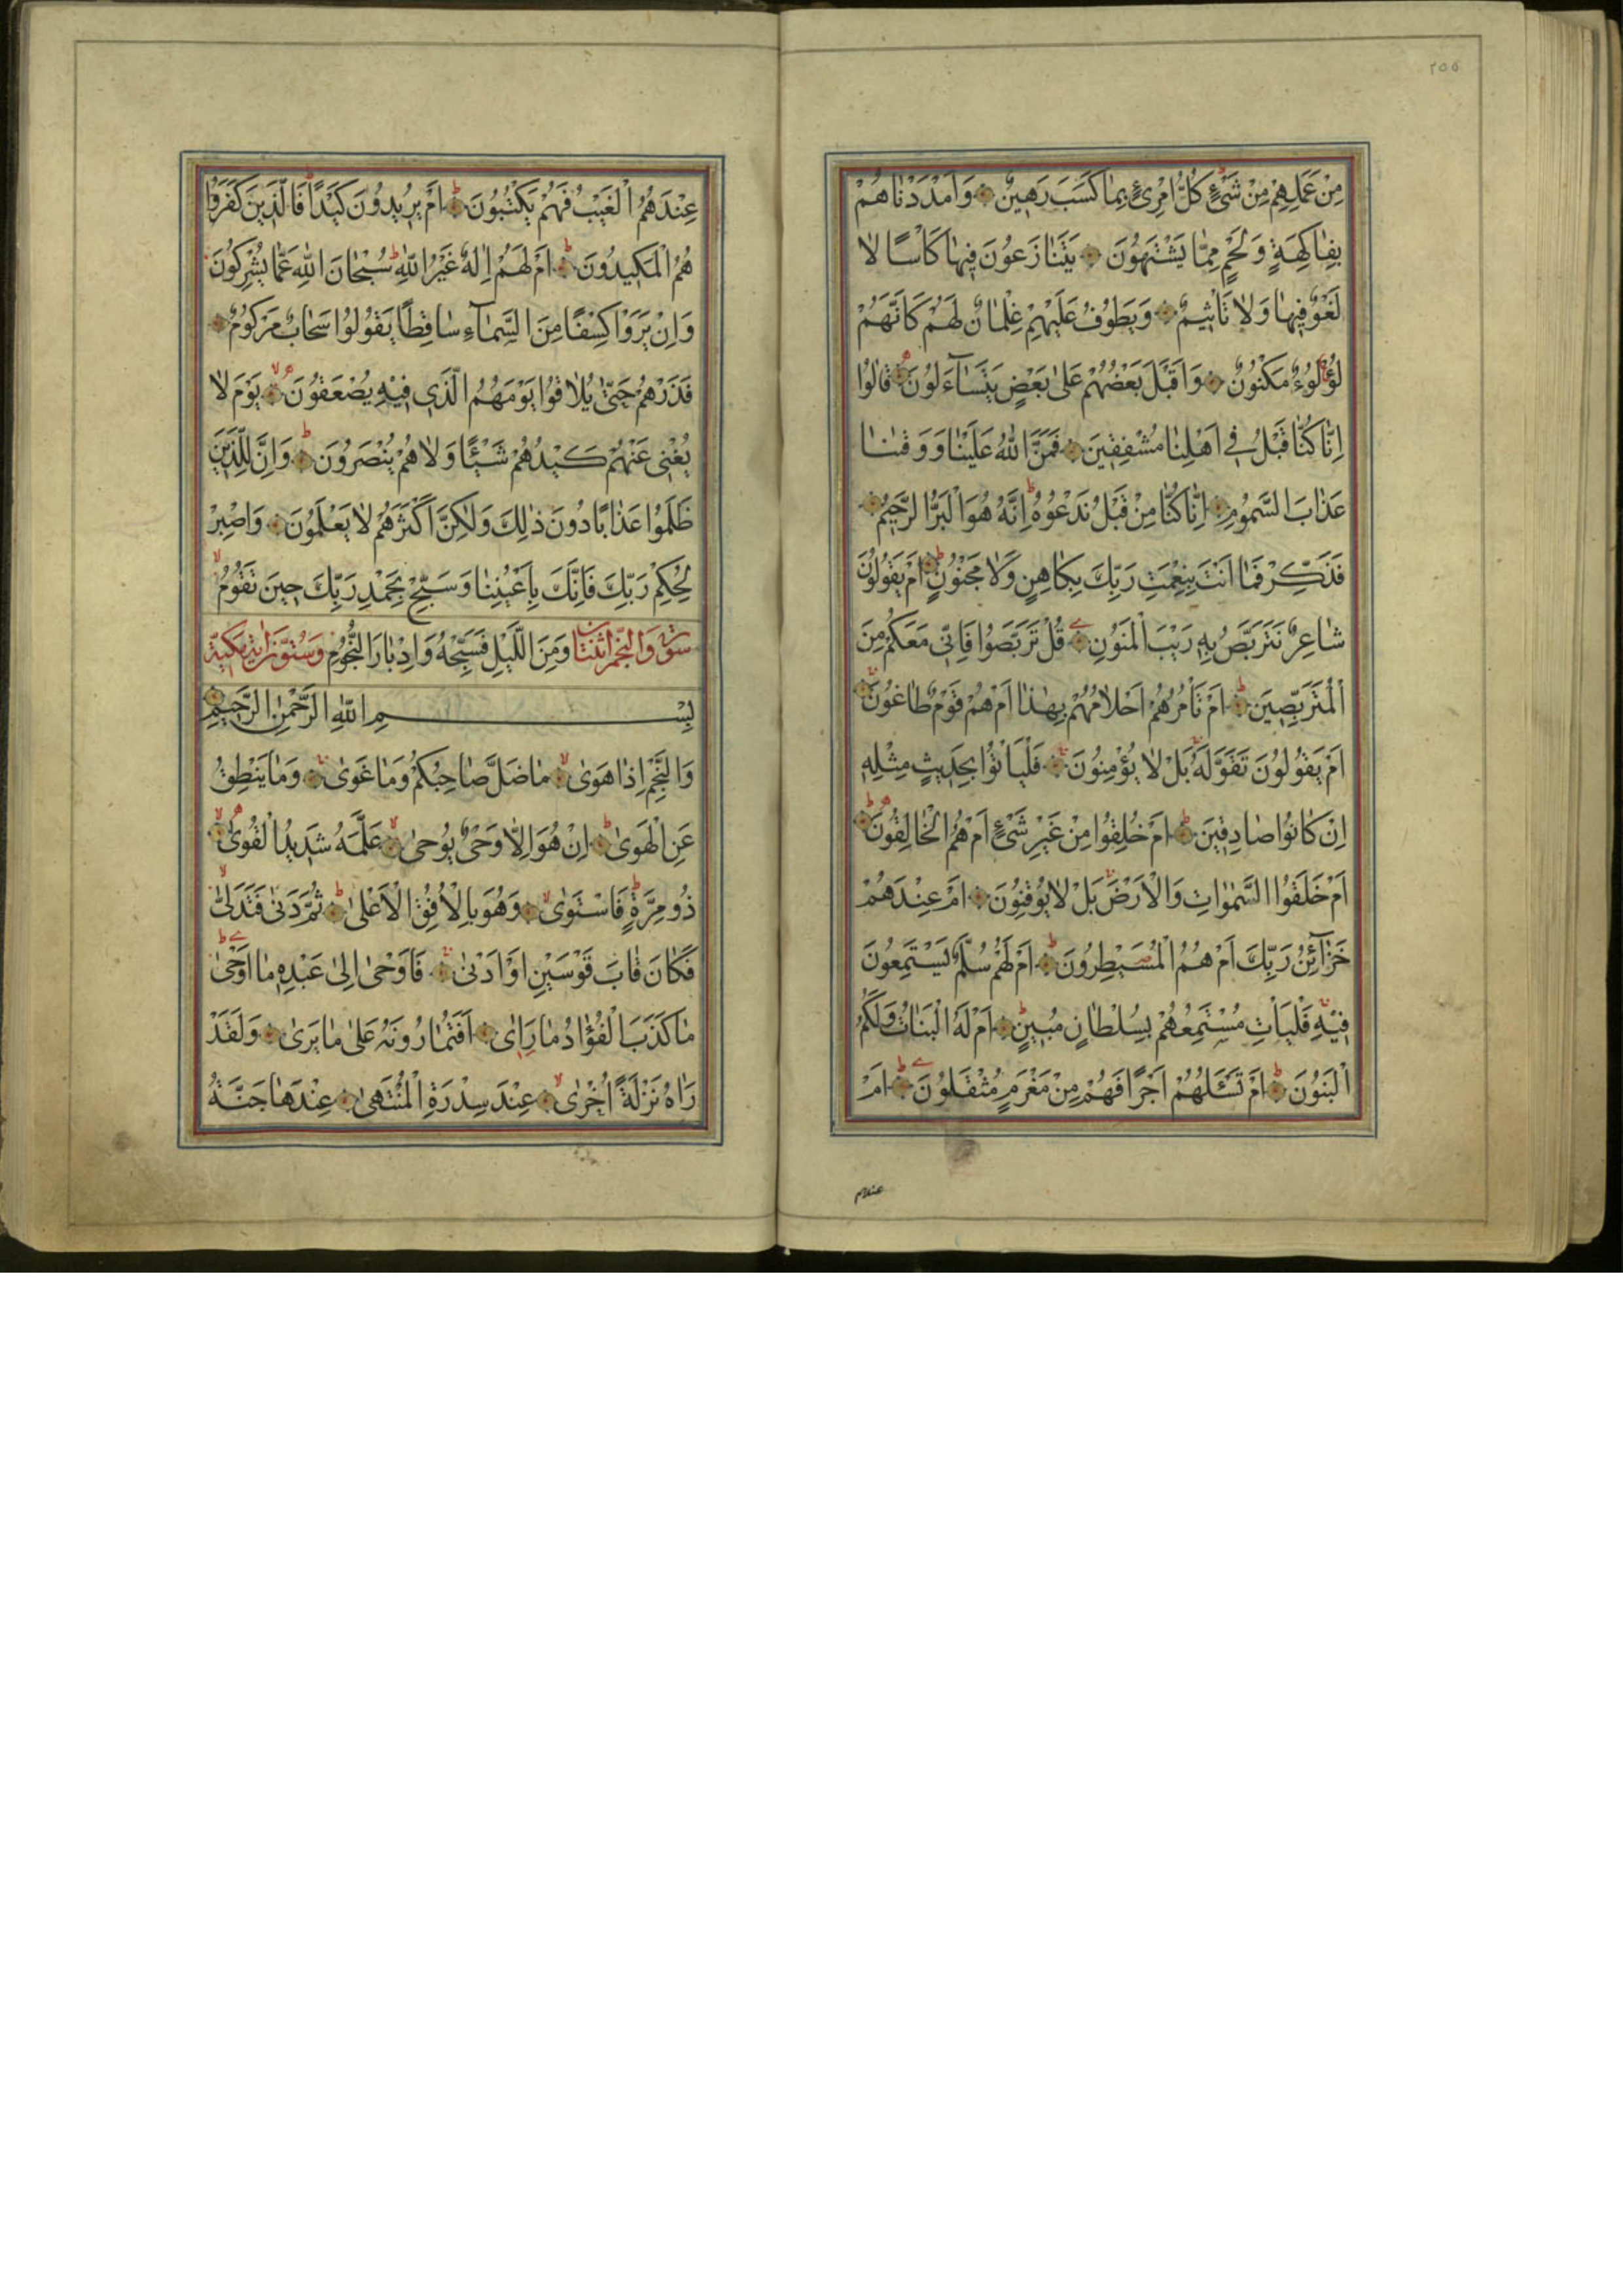 ٢٥٥
مِنْ عَمَلِهِمْ مِنْ شَيْءٍ كُلُّ امْرِئٍ بِمَا كَسَبَ رَهِينٌ وَاَمْدَدْنَاهُمْ
بِفَاكِهَةٍ وَلَحْمٍ مِمَّا يَشْتَهُونَ يَتَنَازَعُونَ فِيهَا كَأْسًا لَا
لَغْوٌ فِيهَا وَلَا تَأْثِيمٌ وَيَطُوفُ عَلَيْهِمْ غِلْمَانٌ لَهُمْ كَاَنَّهُمْ
لُؤْلُؤٌ مَكْنُونٌ وَاَقْبَلَ بَعْضُهُمْ عَلَى بَعْضٍ يَتَسَآءَلُونَ قَالُوا
اِنَّا كُنَّا قَبْلُ فِي اَهْلِنَا مُشْفِقِينَ فَمَنَّ اللّٰهُ عَلَيْنَا وَوَقٰينَا
عَذَابَ السَّمُومِ اِنَّا كُنَّا مِنْ قَبْلُ نَدْعُوهُ اِنَّهُ هُوَ الْبَرُّ الرَّحِيمُ
فَذَكِّرْ فَمَا اَنْتَ بِنِعْمَتِ رَبِّكَ بِكَاهِنٍ وَلَا مَجْنُونٍ اَمْ يَقُولُونَ
شَاعِرٌ نَتَرَبَّصُ بِهِ رَيْبَ الْمَنُونِ قُلْ تَرَبَّصُوا فَاِنِّي مَعَكُمْ مِنَ
الْمُتَرَبِّصِينَ اَمْ تَأْمُرُهُمْ اَحْلَامُهُمْ بِهٰذَا اَمْ هُمْ قَوْمٌ طَاغُونَ
اَمْ يَقُولُونَ تَقَوَّلَهُ بَلْ لَا يُؤْمِنُونَ فَلْيَأْتُوا بِحَدِيثٍ مِثْلِهِ
اِنْ كَانُوا صَادِقِينَ اَمْ خُلِقُوا مِنْ غَيْرِ شَيْءٍ اَمْ هُمُ الْخَالِقُونَ
اَمْ خَلَقُوا السَّمٰوَاتِ وَالْاَرْضَ بَلْ لَا يُوقِنُونَ اَمْ عِنْدَهُمْ
خَزَآئِنُ رَبِّكَ اَمْ هُمُ الْمُصَيْطِرُونَ اَمْ لَهُمْ سُلَّمٌ يَسْتَمِعُونَ
فِيهِ فَلْيَأْتِ مُسْتَمِعُهُمْ بِسُلْطَانٍ مُبِينٍ اَمْ لَهُ الْبَنَاتُ وَلَكُمُ
الْبَنُونَ اَمْ تَسْئَلُهُمْ اَجْرًا فَهُمْ مِنْ مَغْرَمٍ مُثْقَلُونَ اَمْ
عِنْدَهُمُ الْغَيْبُ فَهُمْ يَكْتُبُونَ اَمْ يُرِيدُونَ كَيْدًا فَالَّذِينَ كَفَرُوا
هُمُ الْمَكِيدُونَ اَمْ لَهُمْ اِلٰهٌ غَيْرُ اللّٰهِ سُبْحَانَ اللّٰهِ عَمَّا يُشْرِكُونَ
وَاِنْ يَرَوْا كِسْفًا مِنَ السَّمَآءِ سَاقِطًا يَقُولُوا سَحَابٌ مَرْكُومٌ
فَذَرْهُمْ حَتّٰى يُلَاقُوا يَوْمَهُمُ الَّذِي فِيهِ يُصْعَقُونَ يَوْمَ لَا
يُغْنِي عَنْهُمْ كَيْدُهُمْ شَيْئًا وَلَا هُمْ يُنْصَرُونَ وَاِنَّ لِلَّذِينَ
ظَلَمُوا عَذَابًا دُونَ ذٰلِكَ وَلٰكِنَّ اَكْثَرَهُمْ لَا يَعْلَمُونَ وَاصْبِرْ
لِحُكْمِ رَبِّكَ فَاِنَّكَ بِاَعْيُنِنَا وَسَبِّحْ بِحَمْدِ رَبِّكَ حِينَ تَقُومُ
سورة والنجم اثنتان وَمِنَ اللَّيْلِ فَسَبِّحْهُ وَاِدْبَارَ النُّجُومِ وستون اية مكية
بِسْمِ اللّٰهِ الرَّحْمٰنِ الرَّحِيمِ
وَالنَّجْمِ اِذَا هَوٰى مَا ضَلَّ صَاحِبُكُمْ وَمَا غَوٰى وَمَا يَنْطِقُ
عَنِ الْهَوٰى اِنْ هُوَ اِلَّا وَحْيٌ يُوحٰى عَلَّمَهُ شَدِيدُ الْقُوٰى
ذُو مِرَّةٍ فَاسْتَوٰى وَهُوَ بِالْاُفُقِ الْاَعْلٰى ثُمَّ دَنٰى فَتَدَلّٰى
فَكَانَ قَابَ قَوْسَيْنِ اَوْ اَدْنٰى فَاَوْحٰى اِلٰى عَبْدِهِ مَا اَوْحٰى
مَا كَذَبَ الْفُؤَادُ مَا رَاٰى اَفَتُمَارُونَهُ عَلٰى مَا يَرٰى وَلَقَدْ
رَاٰهُ نَزْلَةً اُخْرٰى عِنْدَ سِدْرَةِ الْمُنْتَهٰى عِنْدَهَا جَنَّةُ